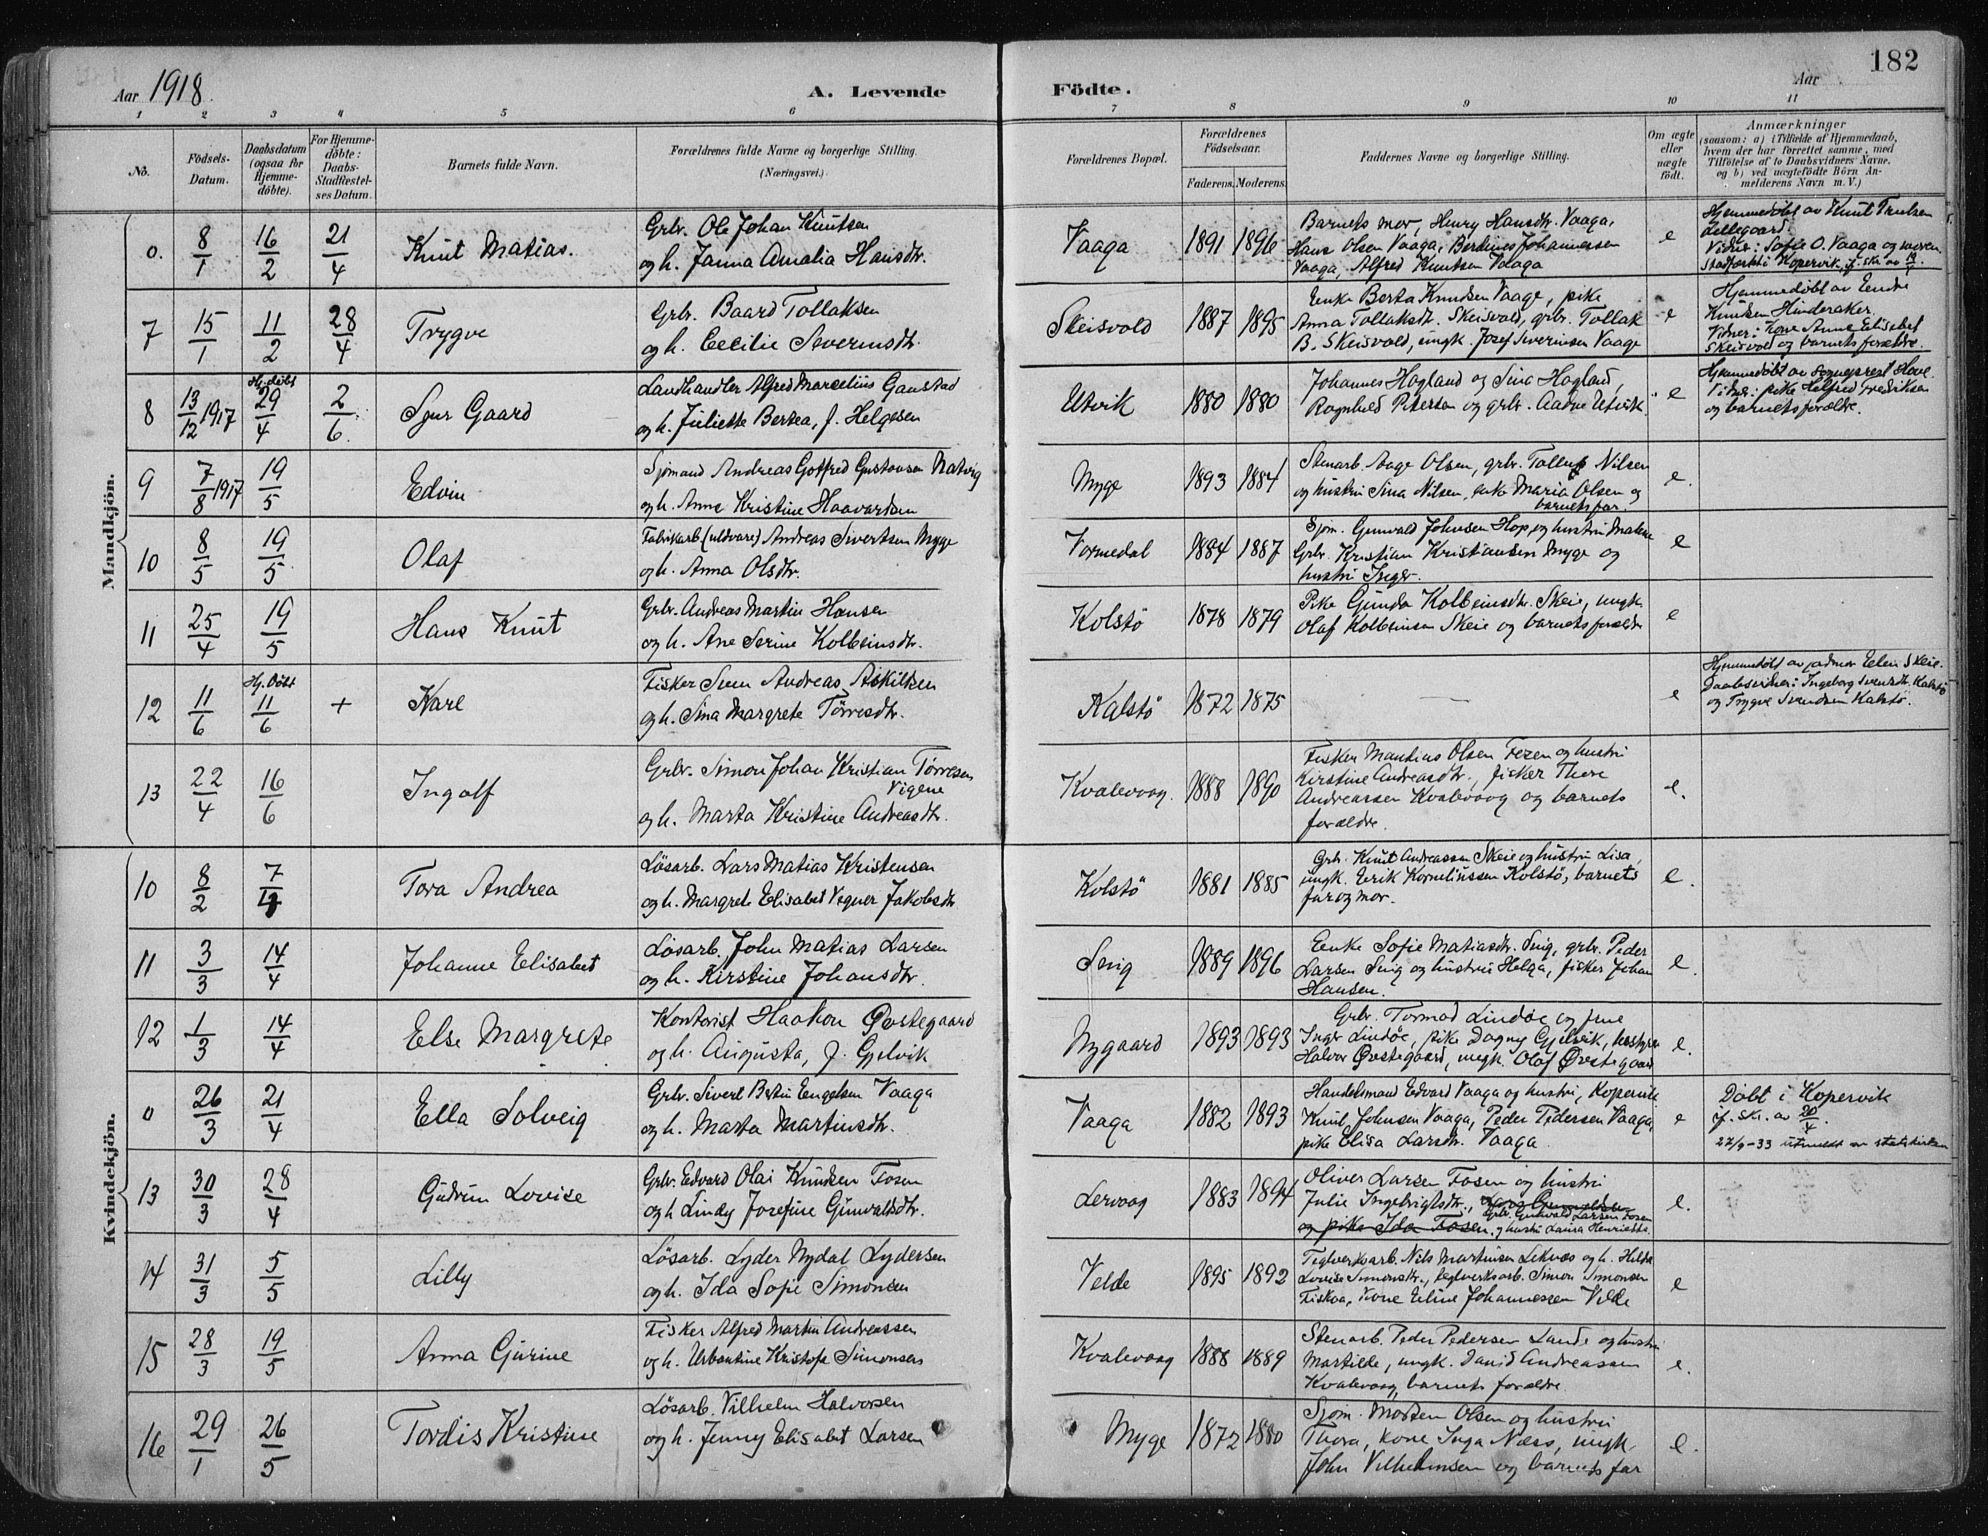 182
Aar 1918.
A. Levende
Födte.
Aar
1 2 3 4 5 6 7 8 9 10 11
No.
Födsels-
Datum.
Daabsdatum
(ogsaa for
Hjemme-
döbte).
For Hjemme-
döbte:
Daabs-
Stadfæstel-
ses Datum.
Barnets fulde Navn.
Forældrenes fulde Navne og borgerlige Stilling.
(Næringsvei.)
Forældrenes Bopæl.
Forældrenes
Födselsaar.
Faderens. Moderens.
Faddernes Navne og borgerlige Stilling.
Om ægte
eller
uægte
födt.
Anmærkninger
(saasom: a) i Tilfælde af Hjemmedaab,
hvem der har forrettet samme, med
Tilföielse af to Daabsvidners Navne,
og b) ved uægtefödte Börn An-
melderens Navn m. V.)
Mandkjön.
0. 8/1 16/2 21/4 Knut Matias.
Grbr. Ole Johan Knutsen
og h. Janna Amalia Hansdtr.
Vaaga 1891 1896
Barnets mor, Henry Hansdtr. Vaaga,
Hans Olsen Vaaga, Berdines Johannessen
Vaaga, Alfred Knutsen Vaaga
e
Hjemmedøbt av Knut Trulsen
Lillegaard
Vidner: Sofie O. Vaaga og moren
Stadfæstet i Kopervik, jf. skr. av
7 15/1 11/2 28/4 Trygve
Grbr. Baard Tollaksen
og h. Cecilie Severinsdtr.
Skeisvold 1887 1895
Enke Berta Knudsen Vaage, pike
Anna Tollaksdtr. Skeisvold, grbr. Tollak
B. Skeisvold, ungk. Josef Severinsen Vaage
e
Hjemmedøbt av Endre
Knutsen Hinderaker.
Vidner: Kone Anne Elisabet
Skeisvold og barnets forældre.
8 13/12 1917 Hj. døbt 29/4 2/6. Sjur Gaard
Landhandler Alfred Marcelius Gaustad
og h. Juliette Bertea, f. Helgesen
Utvik 1880 1880
Johannes Hagland og Sina Hagland,
Ragnhild Petersen og grbr. Aadne Utvik.
e
Hjemmedøbt av sogneprest Hove.
Vidner: pike Helfred Fredriksen
og barnets forældre.
9 7/8 1917 19/5 Edvin
Sjømand Andreas Gotfred Gustavsen Matvig
og h. Anne Kristine Haavardsen
Myge 1893 1884
Stenarb. Aage Olsen, grbr. Tollef Nilsen
og hustri Sina Nilsen, enke Maria Olsen og
barnets far.
e.
10 8/5 19/5 Olaf
Fabrikarb (uldvare) Andreas Sivertsen Myge
og h. Anna Olsdtr.
Vormedal 1884 1887
Sjøm. Gunvald Johnsen Hop og hustri Malene
Grbr. Kristian Kristiansen Myge og
hustri Inger.
e
11 25/4 19/5 Hans Knut
Grbr. Andreas Martin Hansen
og h. Ane Serine Kolbeinsdtr.
Kolstø 1878 1879
Pike Gunda Kolbeinsdtr. Skeie, ungk.
Olaf Kolbeinsen Skeie og barnets forældre
e
12 11/6 Hj. døbt 11/6 + Karl
Fisker Sven Andreas Askildsen
og h. Sina Margrete Tørresdtr.
Kalstø 1872 1875
—
e
Hjemmedøbt av jordmor Elen Skeie.
Daabsvidner: Ingeborg Svendsdtr. Kalstø
og Trygve Svendsen Kalstø.
13 22/4 16/6 Ingolf
Grbr. Simon Johan Kristian Tørresen
Vigene
og h. Marta Kristine Andreasdtr.
Kvalevaag. 1888 1890
Fisker Mandius Olsen Fezen og hustri
Kirstine Andreasdtr., fisker Thore
Andreassen Kvalevaag og barnets
forældre.
e.
Kvindekjön.
10 8/2 7/4 Tora Andrea
Løsarb. Lars Matias Kristensen
og h. Margrete Elisabet Vegner Jakobsdtr
Kolstø 1881 1885
Grb. Knut Andreassen Skeie og hustri Lisa,
ungk. Erik Kornelinssen Kolstø, barnets
far og mor.
e.
11 3/3 14/4 Johanne Elisabet
Løsarb. John Matias Larsen
og h. Kirstine Johansdtr.
Snig 1889 1896
Enke Sofie Matiasdtr. Snig, grbr. Peder
Larsen Snig og hustri Helga, fisker Johan
Hansen.
e.
12 1/3 14/4 Else Margrete
Kontorist Haakon Øvstegaard
og h. Augusta, f. Gjelvik
Nygaard 1893 1893
Grbr. Tormod Lindøe og frue
Inger Lindøe, pike Dagny Gjelvik,
Halvor Øvstegaard, ungk. Olaf Øvstegaard
e.
0 26/3 21/4 Ella Solveig
Grbr. Sivert Bertin Engelsen Vaaga
og h. Marta Martinsdtr.
Vaaga 1882 1893
Handelsmand Edvard Vaaga og hustri, Kopervik
Knut Johnsen Vaaga, Peder Pedersen Vaaga,
pike Elisa Larsdtr. Vaaga
e
Døbt i Kopervik
jf. skr. av 20/4.
22/9-33 utmeldt av statskirken
13 30/3 28/4 Gudrun Lovise
Grbr. Edvard Olai Knudsen Fosen
og h. Lindy Josefine Gunvaldsdtr.
Lervaag 1883 1894
Oliver Larsen Fosen og hustri
Julie Ingebrigtsdtr.,
Grbr. Gunvald Larsen Fosen
og pike Ida Fosen. og hustri Laura Henriette.
e.
14 31/3 5/5 Lilly
Løsarb. Lyder Nydal Lydersen
og h. Ida Sofie Simonsen
Velde 1895 1892
Teglverksarb. Nils Martinsen Liknæs og h. Hilda
Lovise Simonsdtr., teglverksarb. Simon Simonsen
Fiskaa, kone Eline Johannessen Velde
e
15 28/3 19/5 Anna Gurine
Fisker Alfred Martin Andreassen
og h. Urbantine Kristofa Simonsen
Kvalevaag 1888 1889
Stenarb. Peder Pedersen Lande og hustri
Martilde, ungk. David Andreassen
Kvalevaag, barnets forældre.
e.
16 29/1 26/5 Tordis Kristine
Løsarb. Vilhelm Halvorsen
og h. Jenny Elisabet Larsen
Myge 1872 1880
Sjøm. Morten Olsen og hustri
Thora, kone Inga Næss, ungk.
John Vilhelmsen og barnets far
e.